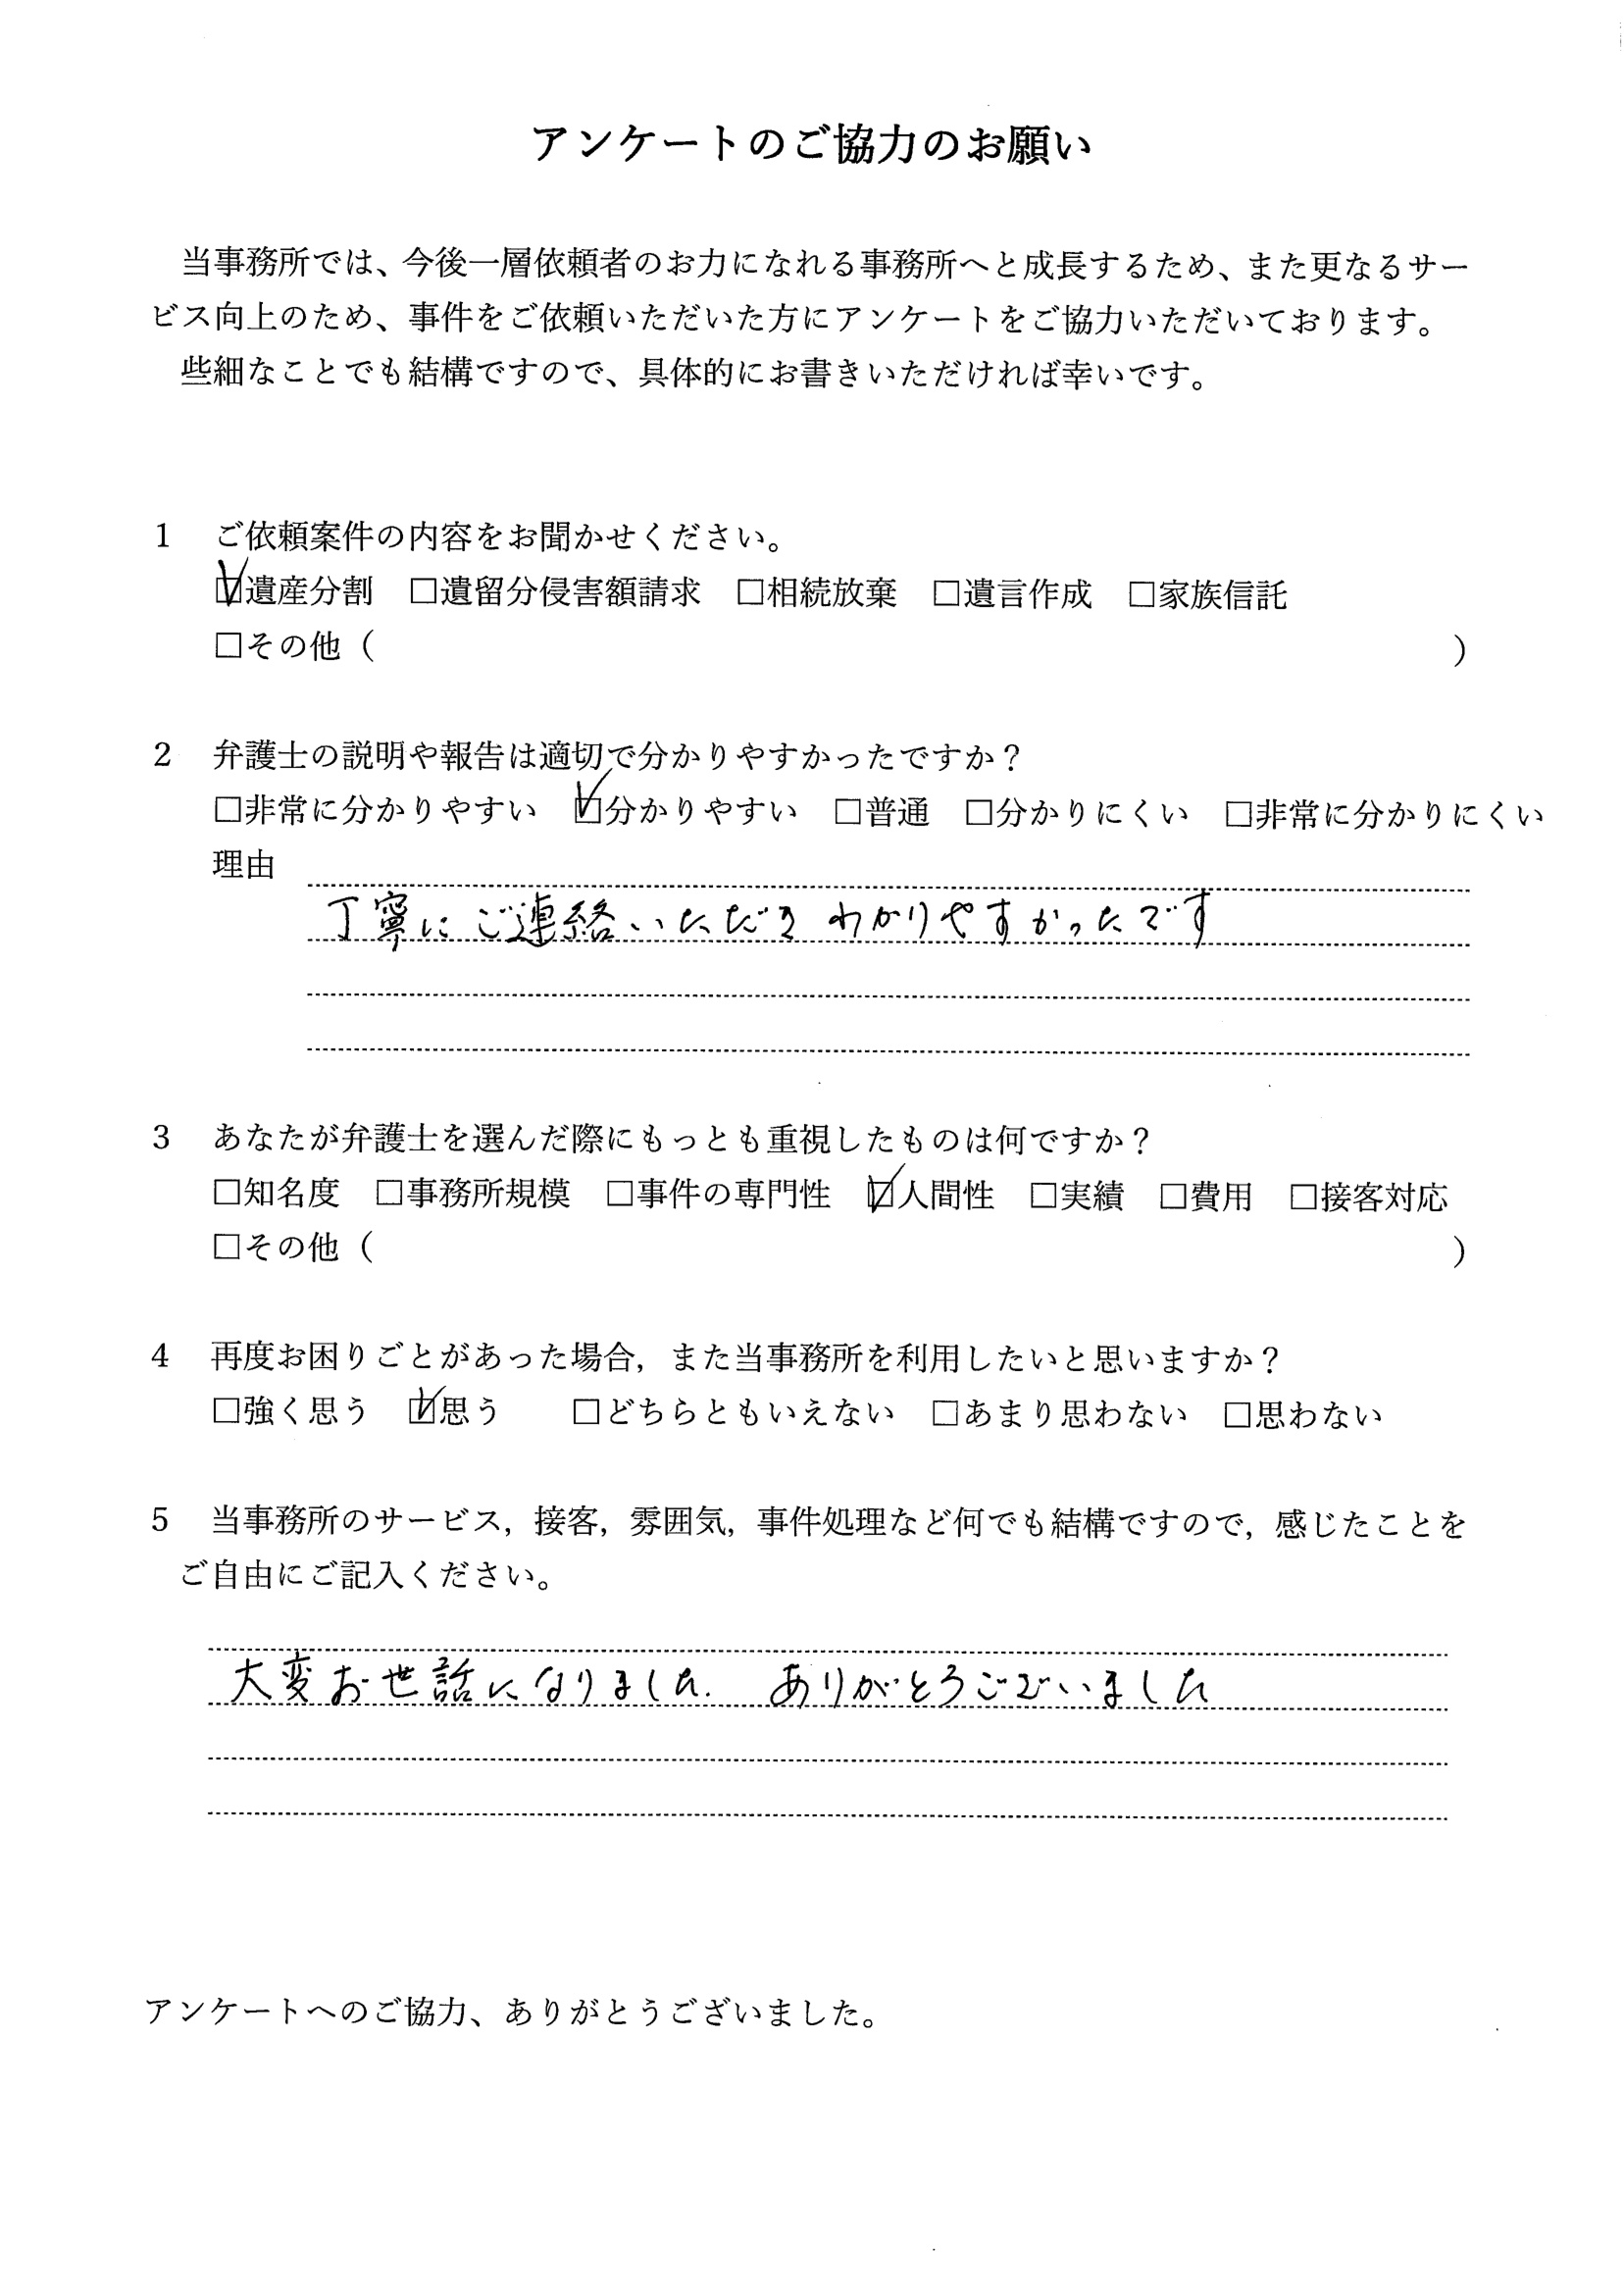 アンケートのご協力のお願い
当事務所では、今後一層依頼者のお力になれる事務所へと成長するため、また更なるサー
ビス向上のため、事件をご依頼いただいた方にアンケートをご協力いただいております。
些細なことでも結構ですので、具体的にお書きいただければ幸いです。
1 ご依頼案件の内容をお聞かせください。
☑遺産分割 □遺留分侵害額請求 □相続放棄 □遺言作成 □家族信託
□その他（ ）
2 弁護士の説明や報告は適切で分かりやすかったですか？
□非常に分かりやすい ☑分かりやすい □普通 □分かりにくい □非常に分かりにくい
理由
丁寧にご連絡いただき わかりやすかったです
3 あなたが弁護士を選んだ際にもっとも重視したものは何ですか？
□知名度 □事務所規模 □事件の専門性 ☑人間性 □実績 □費用 □接客対応
□その他（ ）
4 再度お困りごとがあった場合，また当事務所を利用したいと思いますか？
□強く思う ☑思う □どちらともいえない □あまり思わない □思わない
5 当事務所のサービス，接客，雰囲気，事件処理など何でも結構ですので，感じたことを
ご自由にご記入ください。
大変お世話になりました. ありがとうございました
アンケートへのご協力、ありがとうございました。